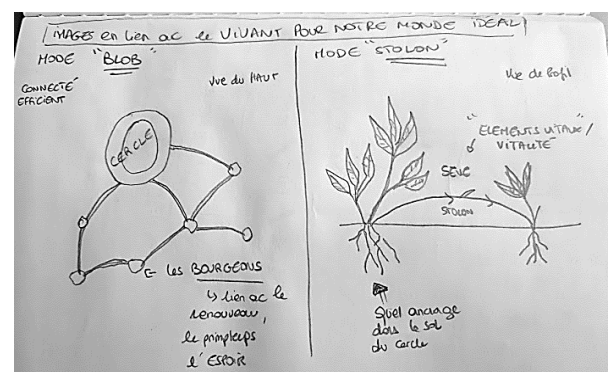 IMAGES en lien ac le VIVANT POUR NOTRE MONDE IDEAL
MODE "BLOB"
CONNECTÉ
EFFICIENT
Vue du HAUT
CERCLE
les BOURGEONS
↳ lien ac le
renouveau,
le printemps
l'ESPOIR
MODE "STOLON"
Vue de Profil
"ELEMENTS VITAUX"/
VITALITÉ
SEVE
STOLON
Quel ancrage
dans le sol
du cercle